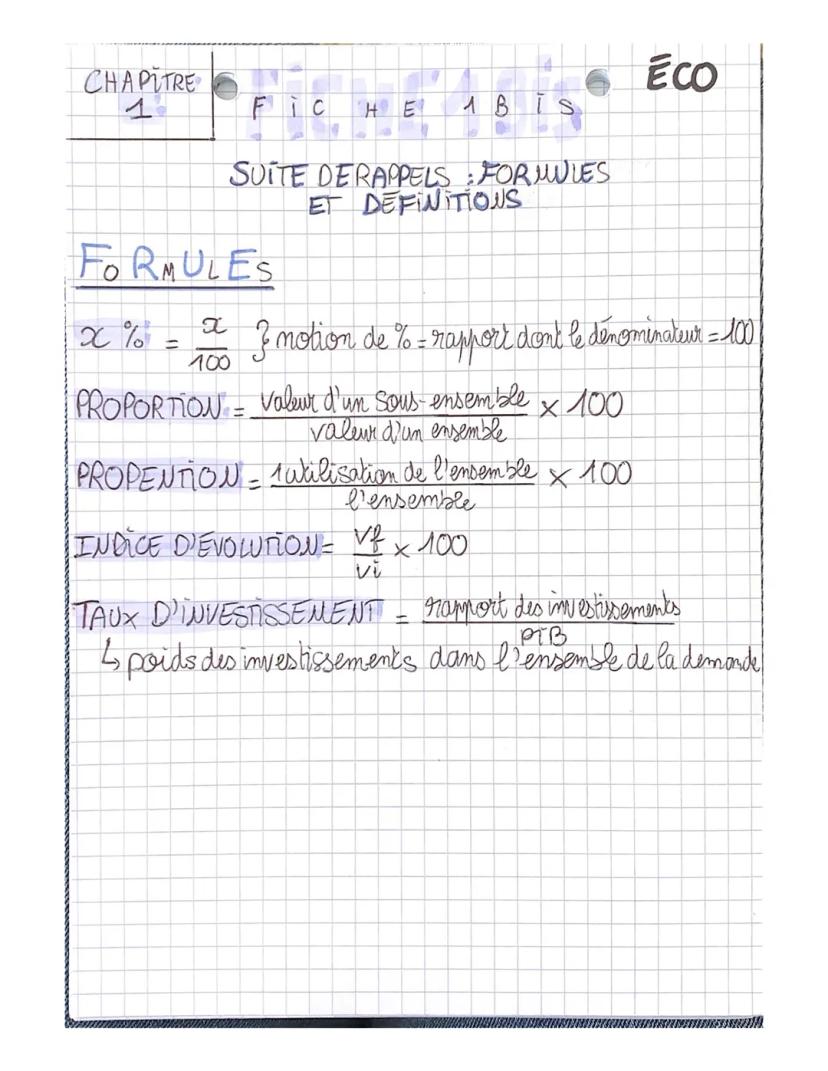 CHAPITRE
1
FICHE 1 BIS
ÉCO
SUITE DE RAPPELS : FORMULES
ET DÉFINITIONS
FORMULES
x % = x/100 } notion de % = rapport dont le dénominateur = 100
PROPORTION = valeur d'un sous-ensemble / valeur d'un ensemble × 100
PROPENTION = 1 utilisation de l'ensemble / l'ensemble × 100
INDICE D'ÉVOLUTION = Vf/Vi × 100
TAUX D'INVESTISSEMENT = rapport des investissements / PIB
↳ poids des investissements dans l'ensemble de la demande